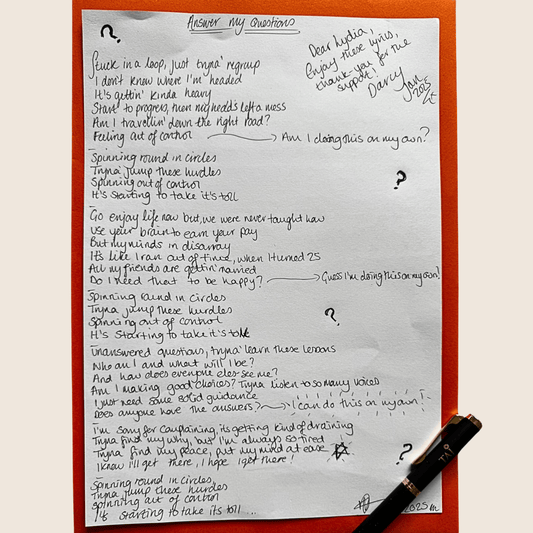 Answer my Questions
?
Dear Lydia,
Enjoy these lyrics,
thank you for the
support!
Darcy
Jan
2025
Stuck in a loop, just tryna' regroup
I don't know where I'm headed
It's gettin' kinda heavy
Start to progress, then my head's left a mess
Am I travellin' down the right road?
Feeling out of control → Am I doing this on my own?
Spinning round in circles
Tryna' jump these hurdles
Spinning out of control
It's starting to take it's toll
?
Go enjoy life now but, we were never taught how
Use your brain to earn your pay
But my minds in disarray
It's like I ran out of time, when I turned 25
All my friends are gettin' married
Do I need that to be happy? → Guess I'm doing this on my own!
Spinning round in circles
Tryna jump these hurdles
Spinning out of control
It's starting to take it's toll
?
Unanswered questions, tryna' learn these lessons
Who am I and what will I be?
And how does everyone else see me?
Am I making good choices? Tryna listen to so many voices
I just need some solid guidance
Does anyone have the answers? → I can do this on my own!
I'm sorry for complaining, its getting kind of draining
Tryna find my why, but I'm always so tired
Tryna find my peace, put my mind at ease
I know I'll get there, I hope I get there!
?
Spinning round in circles
Tryna jump these hurdles
Spinning out of control
It's starting to take its toll ...
2025